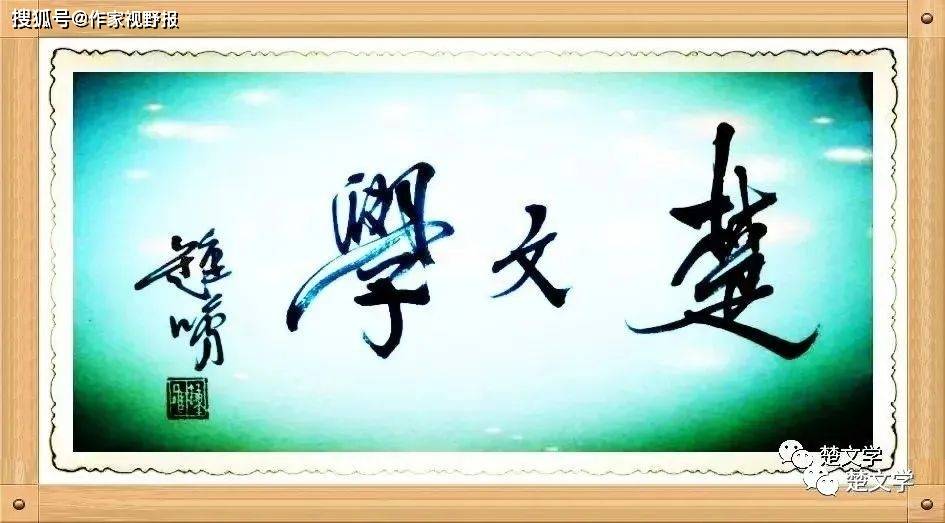 搜狐号@作家视野报
楚文學
楚文学
楚文学